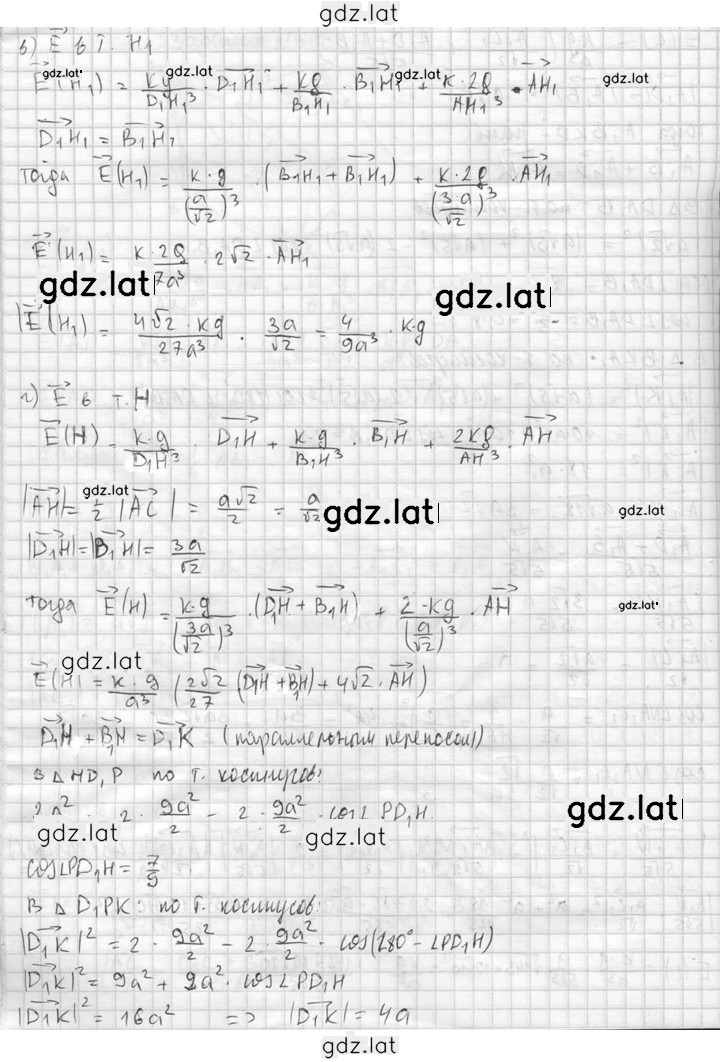 gdz.lat
в) E⃗ в т. H₁
E⃗(H₁) = kq/D₁H₁³ · D₁H₁ + kq/B₁H₁ · B₁H₁ + k·2q/AH₁³ · AH₁
D₁H₁ = B₁H₁
тогда E⃗(H₁) = k·q/(a/√2)³ · (B₁H₁ + B₁H₁) + k·2q/(3·a/√2)³ · AH₁
E⃗(H₁) = k·2q/7a³ · 2√2 · AH₁
gdz.lat gdz.lat
|E⃗(H₁) = 4√2·kq/27a³ · 3a/√2 = 4/9a³ · k·q
г) E⃗ в т. H
E⃗(H) = k·q/D₁H³ · D₁H + k·q/B₁H³ · B₁H + 2kq/AH³ · AH
|AH| = 1/2 |AC| = a√2/2 = a/√2
gdz.lat gdz.lat gdz.lat
|D₁H| = |B₁H| = 3a/√2
тогда E⃗(H) = k·q/(3a/√2)³ · (D₁H + B₁H) + 2·kq/(a/√2)³ · AH
gdz.lat
E⃗(H) = k·q/a³ (2√2/27 (D₁H + B₁H) + 4√2 · AH)
D₁H + B₁H = D₁K (параллельным переносом)
В △ HD₁P по т. косинусов:
2a² 2 · 9a²/2 − 2 · 9a²/2 · cos∠PD₁H
gdz.lat gdz.lat gdz.lat
cos∠PD₁H = 7/9
В △ D₁PK: по т. косинусов:
|D₁K|² = 2 · 9a²/2 − 2 · 9a²/2 · cos(180° − ∠PD₁H)
|D₁K|² = 9a² + 9a² · cos∠PD₁H
|D₁K|² = 16a² => |D₁K| = 4a
gdz.lat